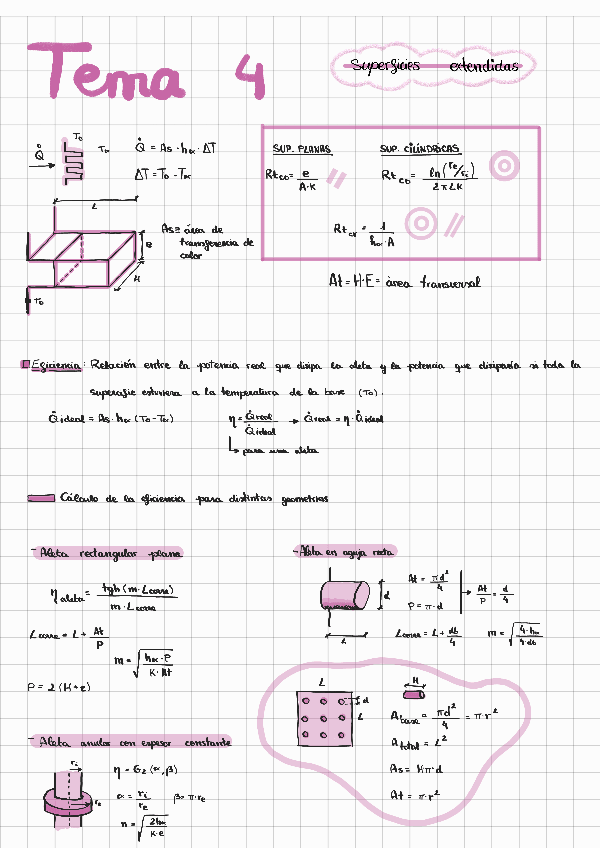 Tema 4
Superficies extendidas
Q̇
T₀
T∞
Q̇ = As · h∞ · ΔT
ΔT = T₀ - T∞
L
B
H
T₀
As ≡ área de
transferencia de
calor
SUP. PLANAS
SUP. CILÍNDRICAS
Rt_CD = e / (A·K)
Rt_CD = ln(re/ri) / (2πLK)
Rt_CV = 1 / (h∞·A)
At = H·E = área transversal
Eficiencia: Relación entre la potencia real que disipa la aleta y la potencia que disiparía si toda la
superficie estuviera a la temperatura de la base (T₀).
Q̇ideal = As · h∞ (T₀ - T∞)
η = Q̇real / Q̇ideal → Q̇real = η · Q̇ideal
↳ para una aleta
Cálculo de la eficiencia para distintas geometrías
- Aleta rectangular plana
η aleta = tgh (m · Lcorre) / (m · Lcorre)
Lcorre = L + At/P
m = √(h∞ · P / (K · At))
P = 2 (H + e)
- Aleta en aguja recta
d
L
At = πd²/4
P = π · d
→ At/P = d/4
Lcorre = L + db/4
m = √(4·h∞ / (4·db))
L
d
L
H
A base = πd²/4 = πr²
A total = L²
As = Hπ·d
At = π·r²
- Aleta anular con espesor constante
ri
re
η = G₂ (α, β)
α = ri/re
β = π·re
n = √(2h∞ / (K·e))